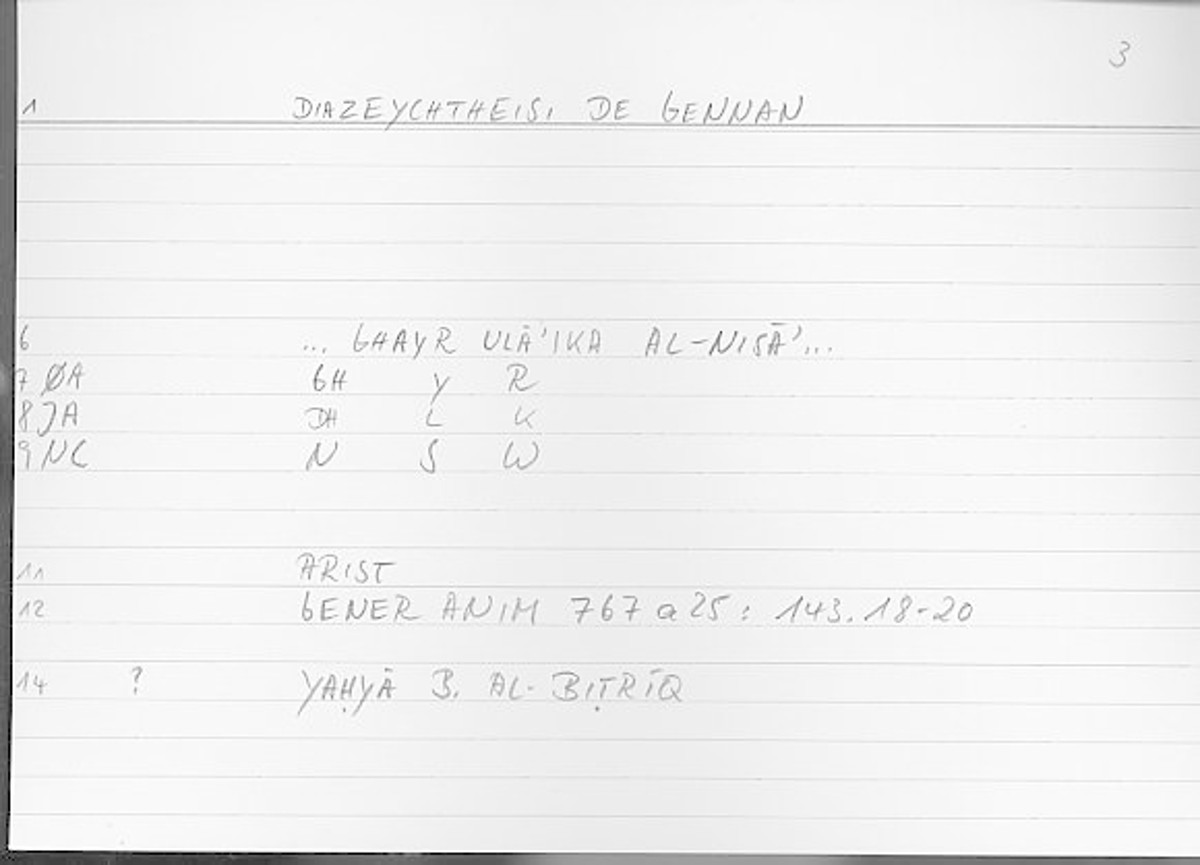 3
1 DIAZEYCHTHEISI DE GENNAN
6 ... GHAYR ULĀ'IKA AL-NISĀ'...
7 ØA GH Y R
8 JA DH L K
9 NC N S W
11 ARIST
12 GENER ANIM 767 a 25 : 143.18-20
14 ? YAḤYĀ B. AL-BIṬRĪQ